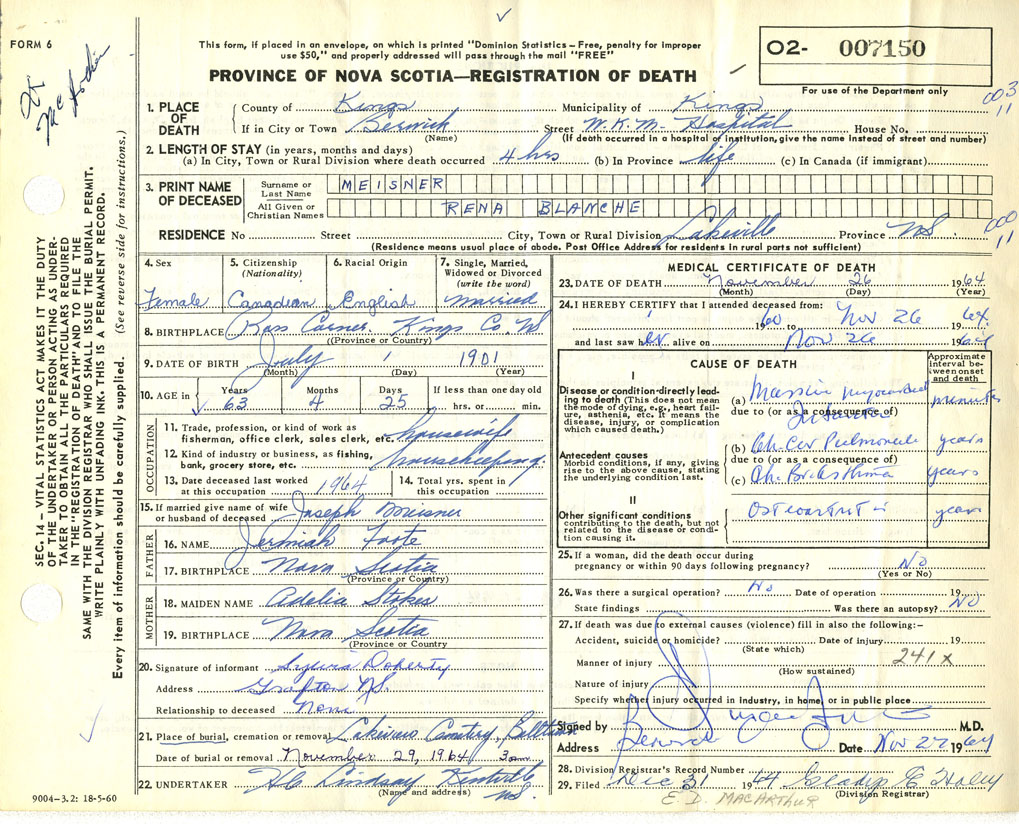 FORM 6
This form, if placed in an envelope, on which is printed "Dominion Statistics – Free, penalty for improper
use $50," and properly addressed will pass through the mail "FREE"
PROVINCE OF NOVA SCOTIA—REGISTRATION OF DEATH
02- 007150
For use of the Department only
003
11
1. PLACE OF DEATH
County of Kings Municipality of Kings
If in City or Town Berwick Street W.K.M. Hospital House No.
(Name) (If death occurred in a hospital or institution, give the name instead of street and number)
2. LENGTH OF STAY (in years, months and days)
(a) In City, Town or Rural Division where death occurred 4 hrs (b) In Province life (c) In Canada (if immigrant)
3. PRINT NAME OF DECEASED
Surname or Last Name MEISNER
All Given or Christian Names RENA BLANCHE
000
11
RESIDENCE No Street City, Town or Rural Division Lakeville Province NS
(Residence means usual place of abode. Post Office Address for residents in rural parts not sufficient)
4. Sex Female
5. Citizenship (Nationality) Canadian
6. Racial Origin English
7. Single, Married, Widowed or Divorced (write the word) Married
8. BIRTHPLACE Ross Corner, Kings Co NS
(Province or Country)
9. DATE OF BIRTH July 1 1901
(Month) (Day) (Year)
10. AGE in Years 63 Months 4 Days 25 If less than one day old hrs. or min.
OCCUPATION
11. Trade, profession, or kind of work as fisherman, office clerk, sales clerk, etc. housewife
12. Kind of industry or business, as fishing, bank, grocery store, etc. housekeeping
13. Date deceased last worked at this occupation 1964
14. Total yrs. spent in this occupation
15. If married give name of wife or husband of deceased Joseph Meisner
FATHER
16. NAME Jermiah Foote
17. BIRTHPLACE Nova Scotia
(Province or Country)
MOTHER
18. MAIDEN NAME Adelia Stokes
19. BIRTHPLACE Nova Scotia
(Province or Country)
20. Signature of informant Doherty
Address Grafton N.S.
Relationship to deceased None
21. Place of burial, cremation or removal Cemetery,
Date of burial or removal November 29, 1964 3 pm
22. UNDERTAKER Lindsay Kentville NS.
(Name and address)
9004–3.2: 18-5-60
MEDICAL CERTIFICATE OF DEATH
23. DATE OF DEATH November 26 1964
(Month) (Day) (Year)
24. I HEREBY CERTIFY that I attended deceased from:
1960 to Nov 26 1964
and last saw her alive on Nov 26 1964
CAUSE OF DEATH
Approximate interval between onset and death
I
Disease or condition directly leading to death (This does not mean the mode of dying, e.g., heart failure, asthenia, etc. It means the disease, injury, or complication which caused death.)
(a) Massive myocardial minutes
due to (or as a consequence of)
Antecedent causes
Morbid conditions, if any, giving rise to the above cause, stating the underlying condition last.
(b) Ch. Cor Pulmonale years
due to (or as a consequence of)
(c) Ch. Br. Asthma years
II
Other significant conditions
contributing to the death, but not related to the disease or condition causing it.
Osteoarthritis years
25. If a woman, did the death occur during
pregnancy or within 90 days following pregnancy? No
(Yes or No)
26. Was there a surgical operation? No Date of operation 19
State findings Was there an autopsy? No
27. If death was due to external causes (violence) fill in also the following:–
Accident, suicide or homicide? Date of injury 19
(State which)
Manner of injury 241x
(How sustained)
Nature of injury
Specify whether injury occurred in industry, in home, or in public place
Signed by M.D.
Address Berwick Date Nov 27 1964
28. Division Registrar's Record Number
29. Filed Dec 31 1964 Gladys E
(Division Registrar)
E. D. MACARTHUR
SEC. 14 – VITAL STATISTICS ACT MAKES IT THE DUTY
OF THE UNDERTAKER OR PERSON ACTING AS UNDER-
TAKER TO OBTAIN ALL THE PARTICULARS REQUIRED
IN THE "REGISTRATION OF DEATH" AND TO FILE THE
SAME WITH THE DIVISION REGISTRAR WHO SHALL ISSUE THE BURIAL PERMIT.
WRITE PLAINLY WITH UNFADING INK. THIS IS A PERMANENT RECORD.
Every item of information should be carefully supplied. (See reverse side for instructions.)